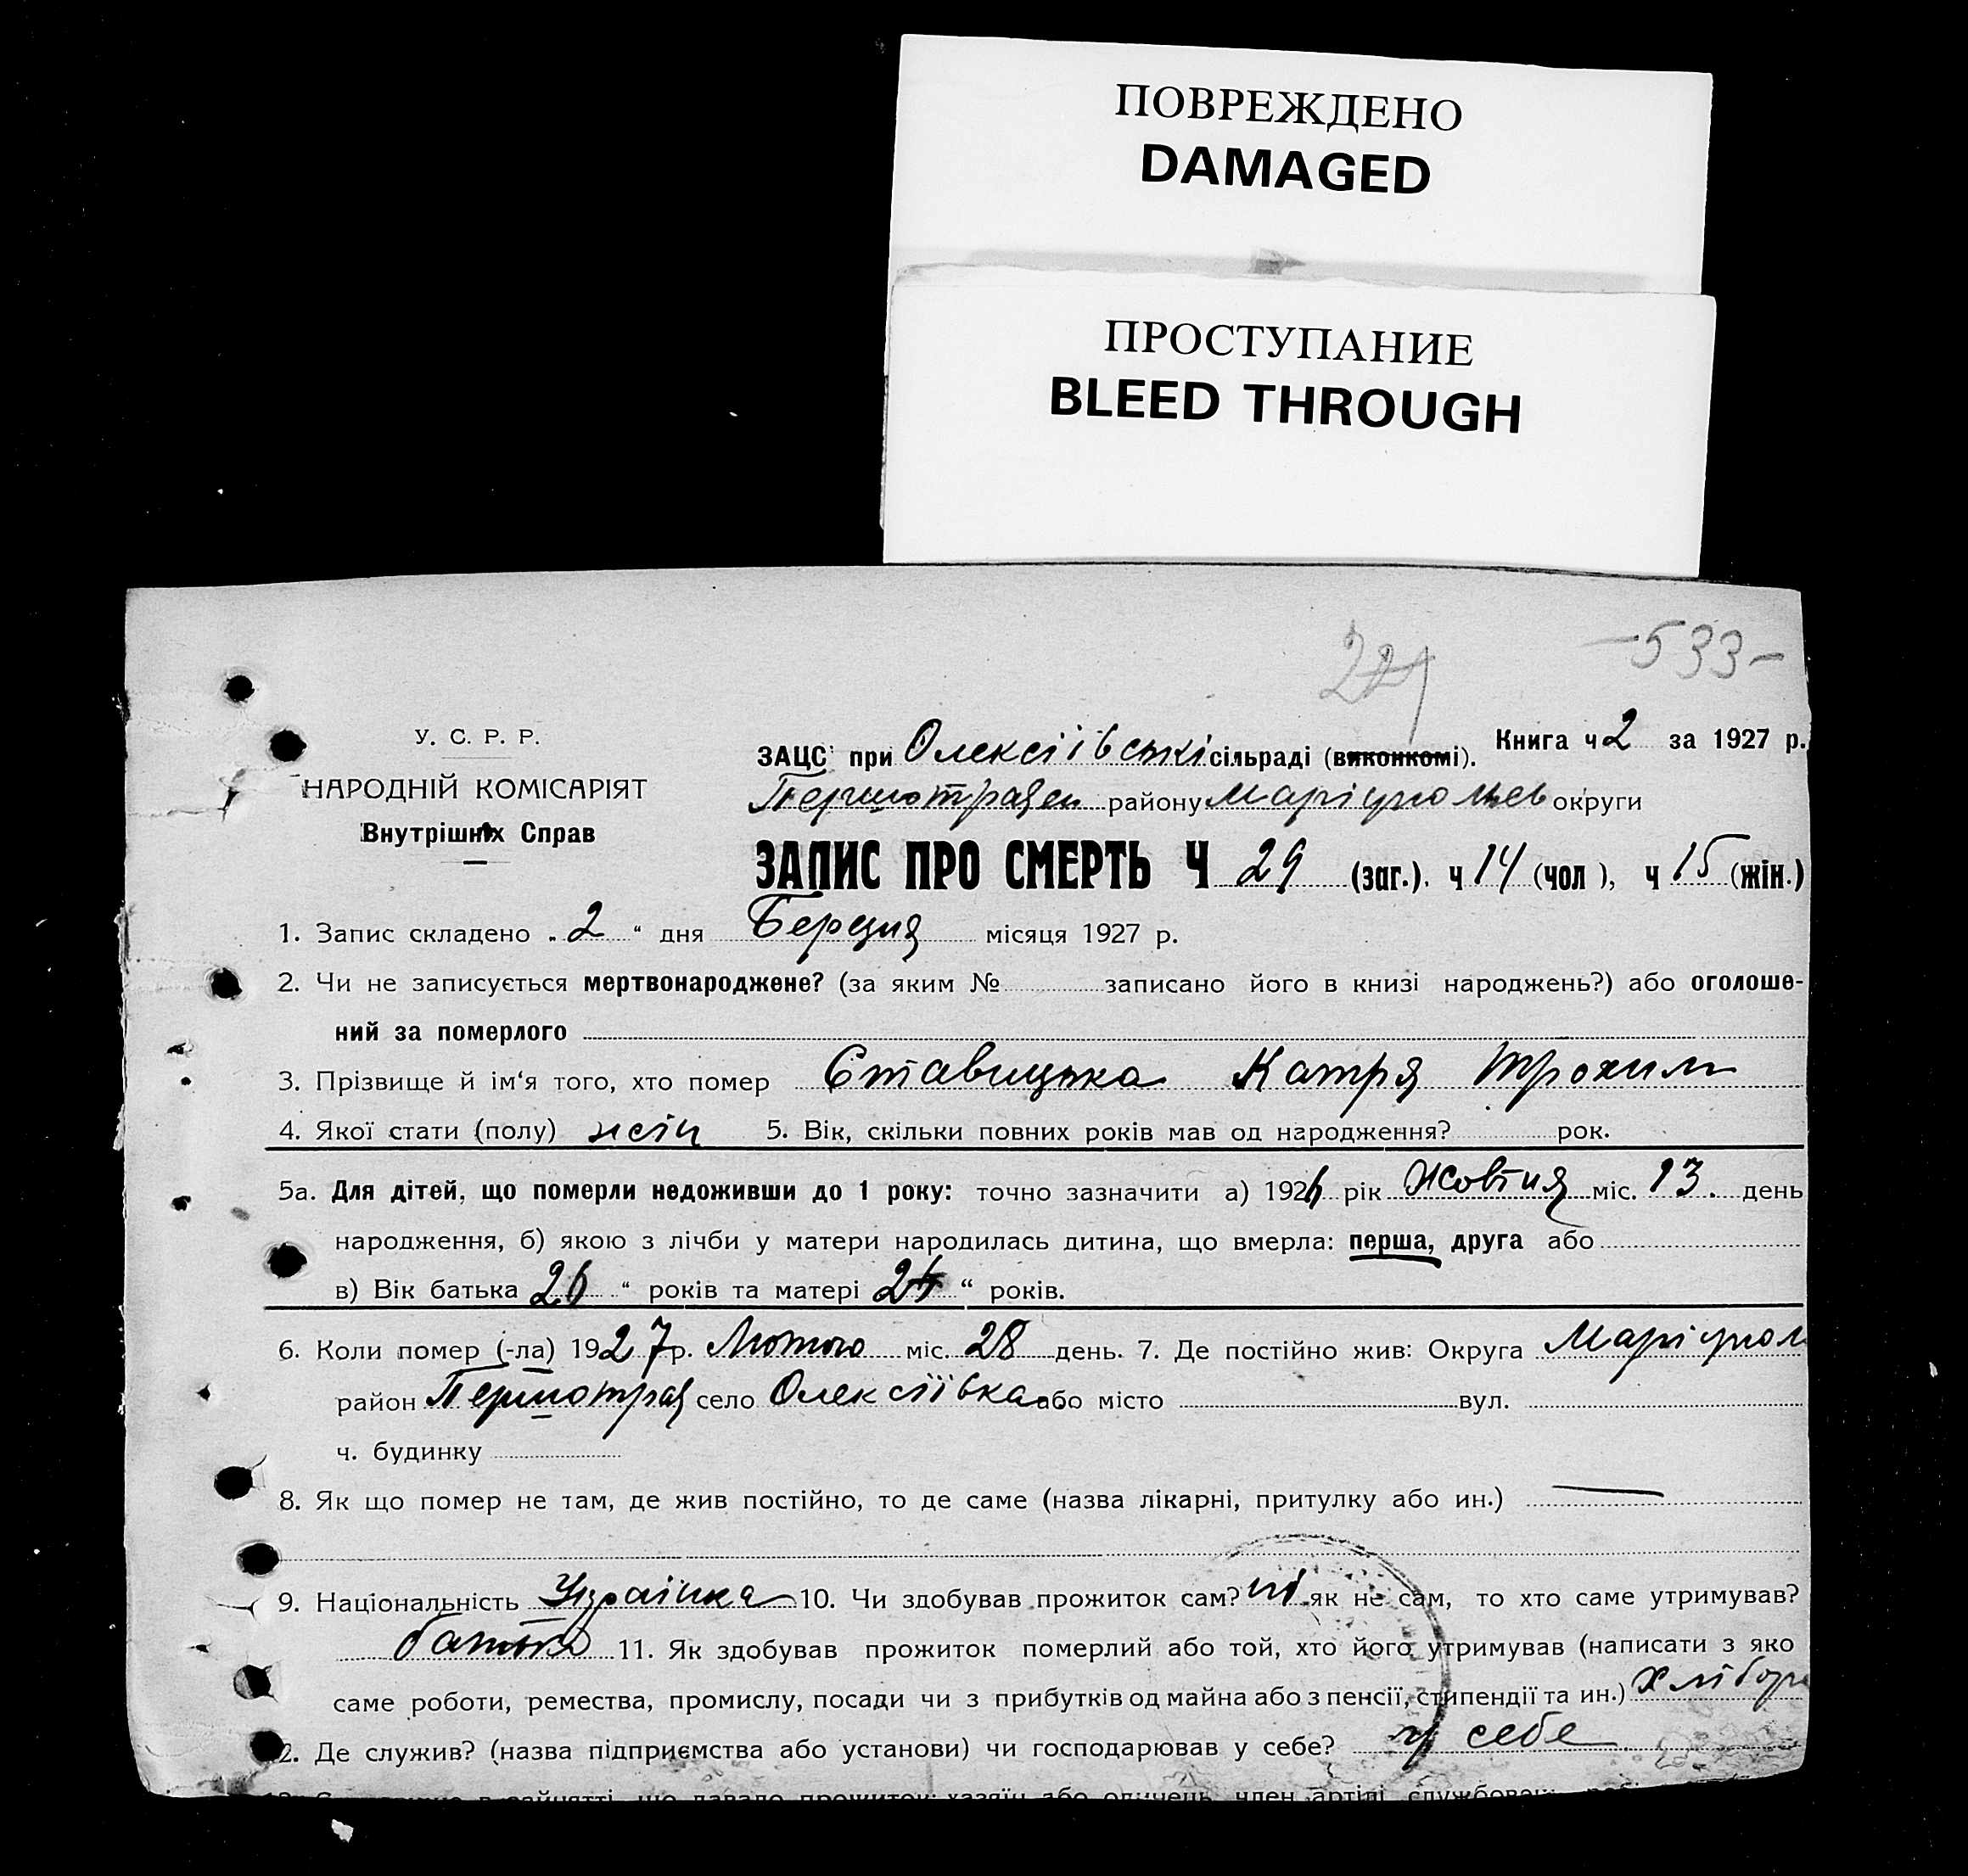 ПОВРЕЖДЕНО
DAMAGED
ПРОСТУПАНИЕ
BLEED THROUGH
-533-
У. С. Р. Р.
НАРОДНІЙ КОМІСАРІЯТ
Внутрішніх Справ
ЗАЦС при Олексіївські сільраді (виконкомі). Книга ч 2 за 1927 р.
Першотравен району Маріупольськ округи
ЗАПИС ПРО СМЕРТЬ Ч 29 (заг.). ч 14 (чол), ч 15 (жін.)
1. Запис складено „2“ дня Березня місяця 1927 р.
2. Чи не записується мертвонароджене? (за яким № записано його в книзі народжень?) або оголоше-
ний за померлого
3. Прізвище й ім‘я того, хто помер Ставицька Катря Трохим
4. Якої стати (полу) жін 5. Вік, скільки повних років мав од народження? рок.
5а. Для дітей, що померли недоживши до 1 року: точно зазначити а) 1926 рік Жовтня міс. 13. день
народження, б) якою з лічби у матери народилась дитина, що вмерла: перша, друга або
в) Вік батька 26 “ років та матері “ років.
6. Коли помер (-ла) 1927 р. Лютого міс. 28 день. 7. Де постійно жив: Округа Маріупол
район Першотрав село Олексіївка або місто вул.
ч. будинку
8. Як що помер не там, де жив постійно, то де саме (назва лікарні, притулку або ин.) —
9. Національність Українка 10. Чи здобував прожиток сам? ні як не сам, то хто саме утримував?
батько 11. Як здобував прожиток померлий або той, хто його утримував (написати з яко
саме роботи, ремества, промислу, посади чи з прибутків од майна або з пенсії, стипендії та ин.) Хлібор
2. Де служив? (назва підприємства або установи) чи господарював у себе? у себе